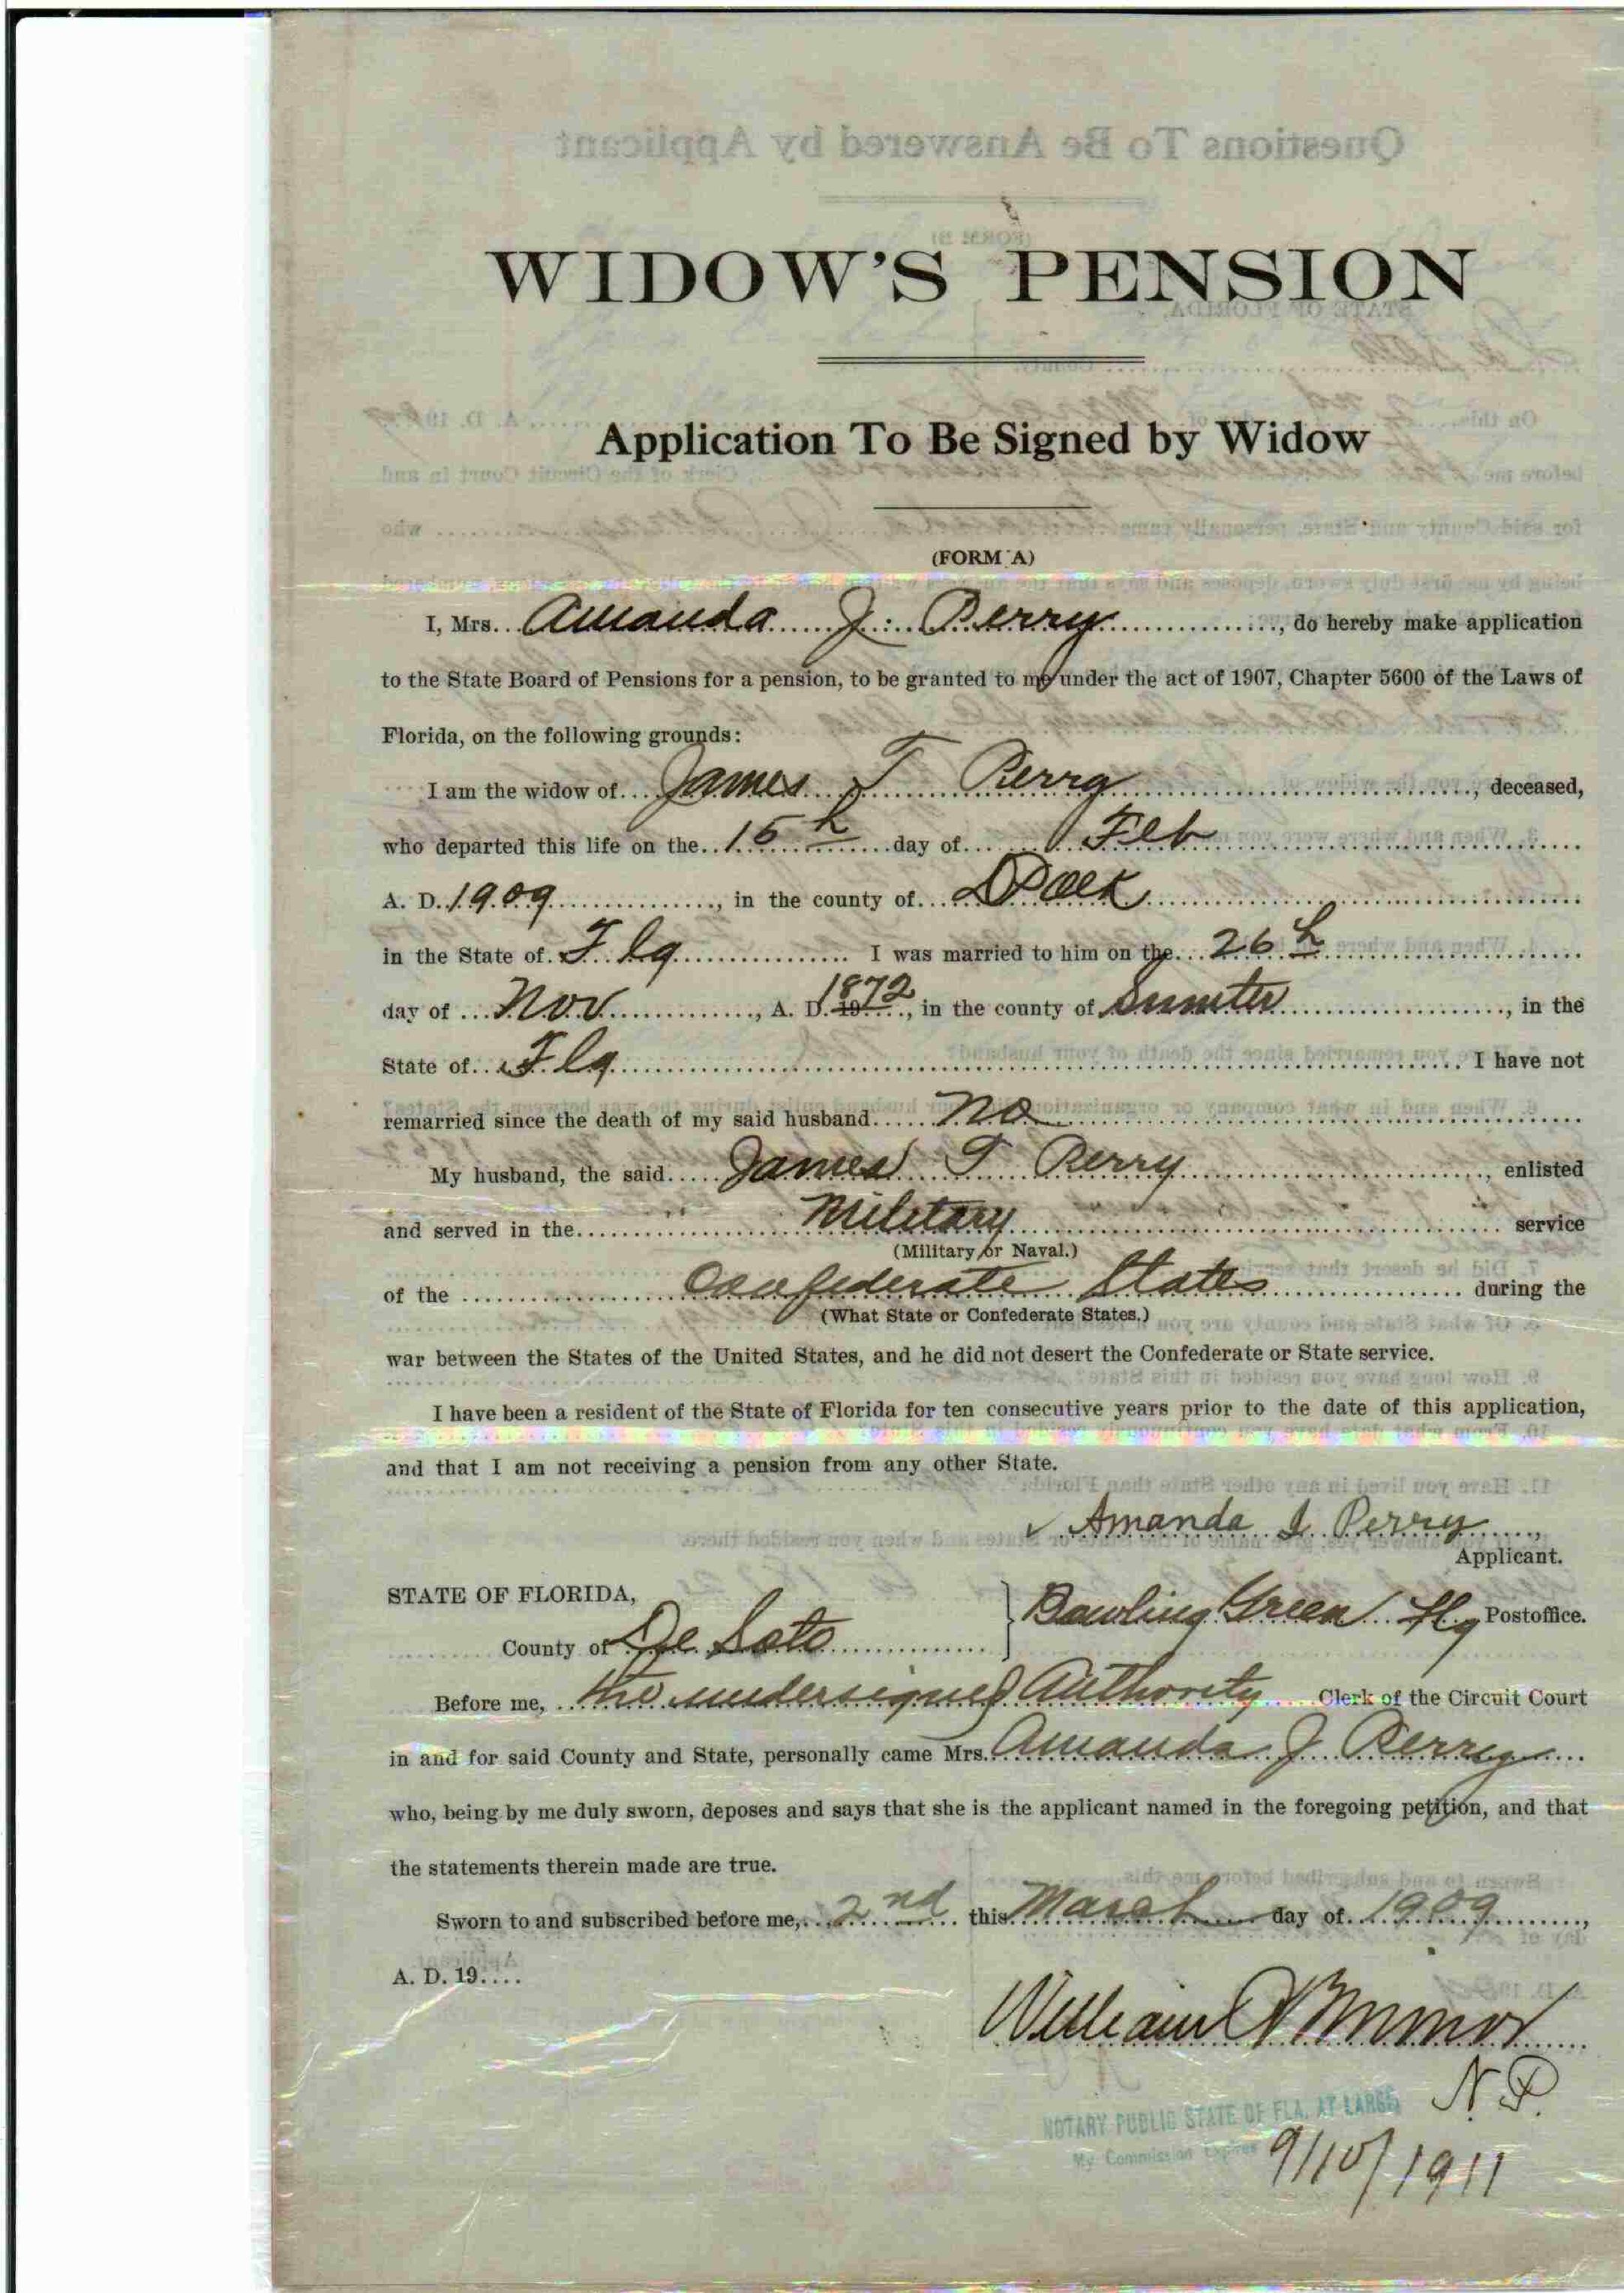 WIDOW'S PENSION
Application To Be Signed by Widow
(FORM A)
I, Mrs. Amanda J. Perry, do hereby make application
to the State Board of Pensions for a pension, to be granted to me under the act of 1907, Chapter 5600 of the Laws of
Florida, on the following grounds:
I am the widow of James T Perry, deceased,
who departed this life on the 15h day of Feb
A. D. 1909, in the county of Polk
in the State of Fla I was married to him on the 26h
day of Nov, A. D. 19 1872, in the county of Sumter, in the
State of Fla I have not
remarried since the death of my said husband no
My husband, the said James T Perry, enlisted
and served in the Military service
(Military or Naval.)
of the Confederate States during the
(What State or Confederate States.)
war between the States of the United States, and he did not desert the Confederate or State service.
I have been a resident of the State of Florida for ten consecutive years prior to the date of this application,
and that I am not receiving a pension from any other State.
Amanda J Perry,
Applicant.
STATE OF FLORIDA,
Bowling Green Fla Postoffice.
County of De Soto
Before me, the undersigned Authority Clerk of the Circuit Court
in and for said County and State, personally came Mrs. Amanda J Perry
who, being by me duly sworn, deposes and says that she is the applicant named in the foregoing petition, and that
the statements therein made are true.
Sworn to and subscribed before me, 2nd this March day of 1909,
A. D. 19....
William
N. P.
NOTARY PUBLIC STATE OF FLA. AT LARGE
My Commission Expires 9/10/1911